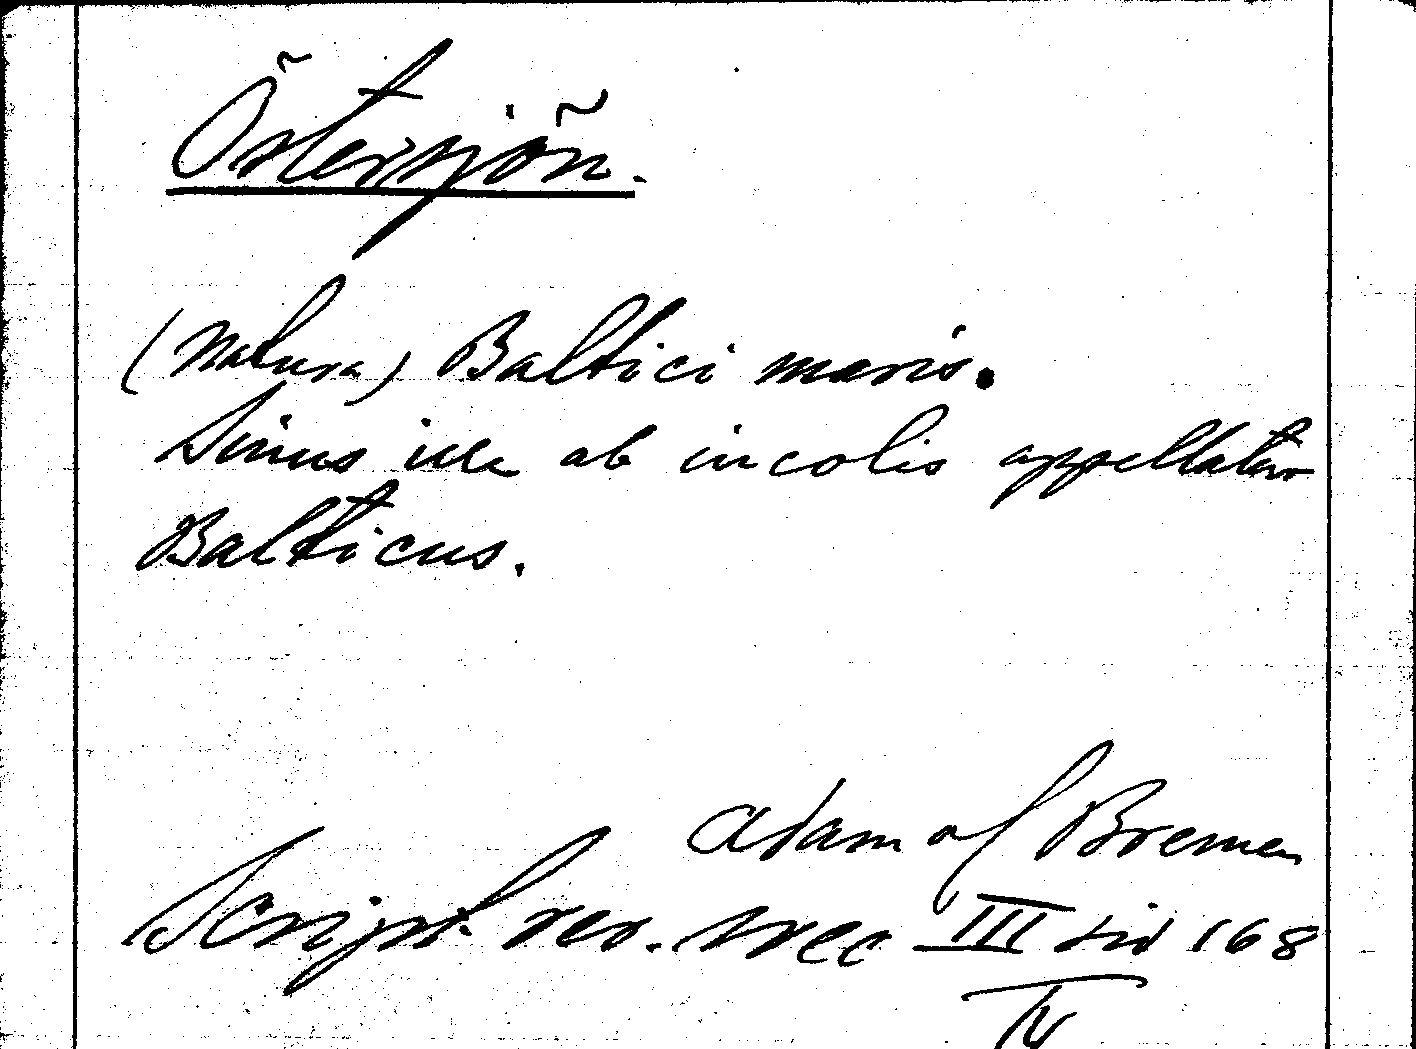 Östersjön.
(Natura) Baltici maris.
Sinus ille ab incolis appellatur
Balticus.
Adam af Bremen
Script. rer. svec III sid 168
IV